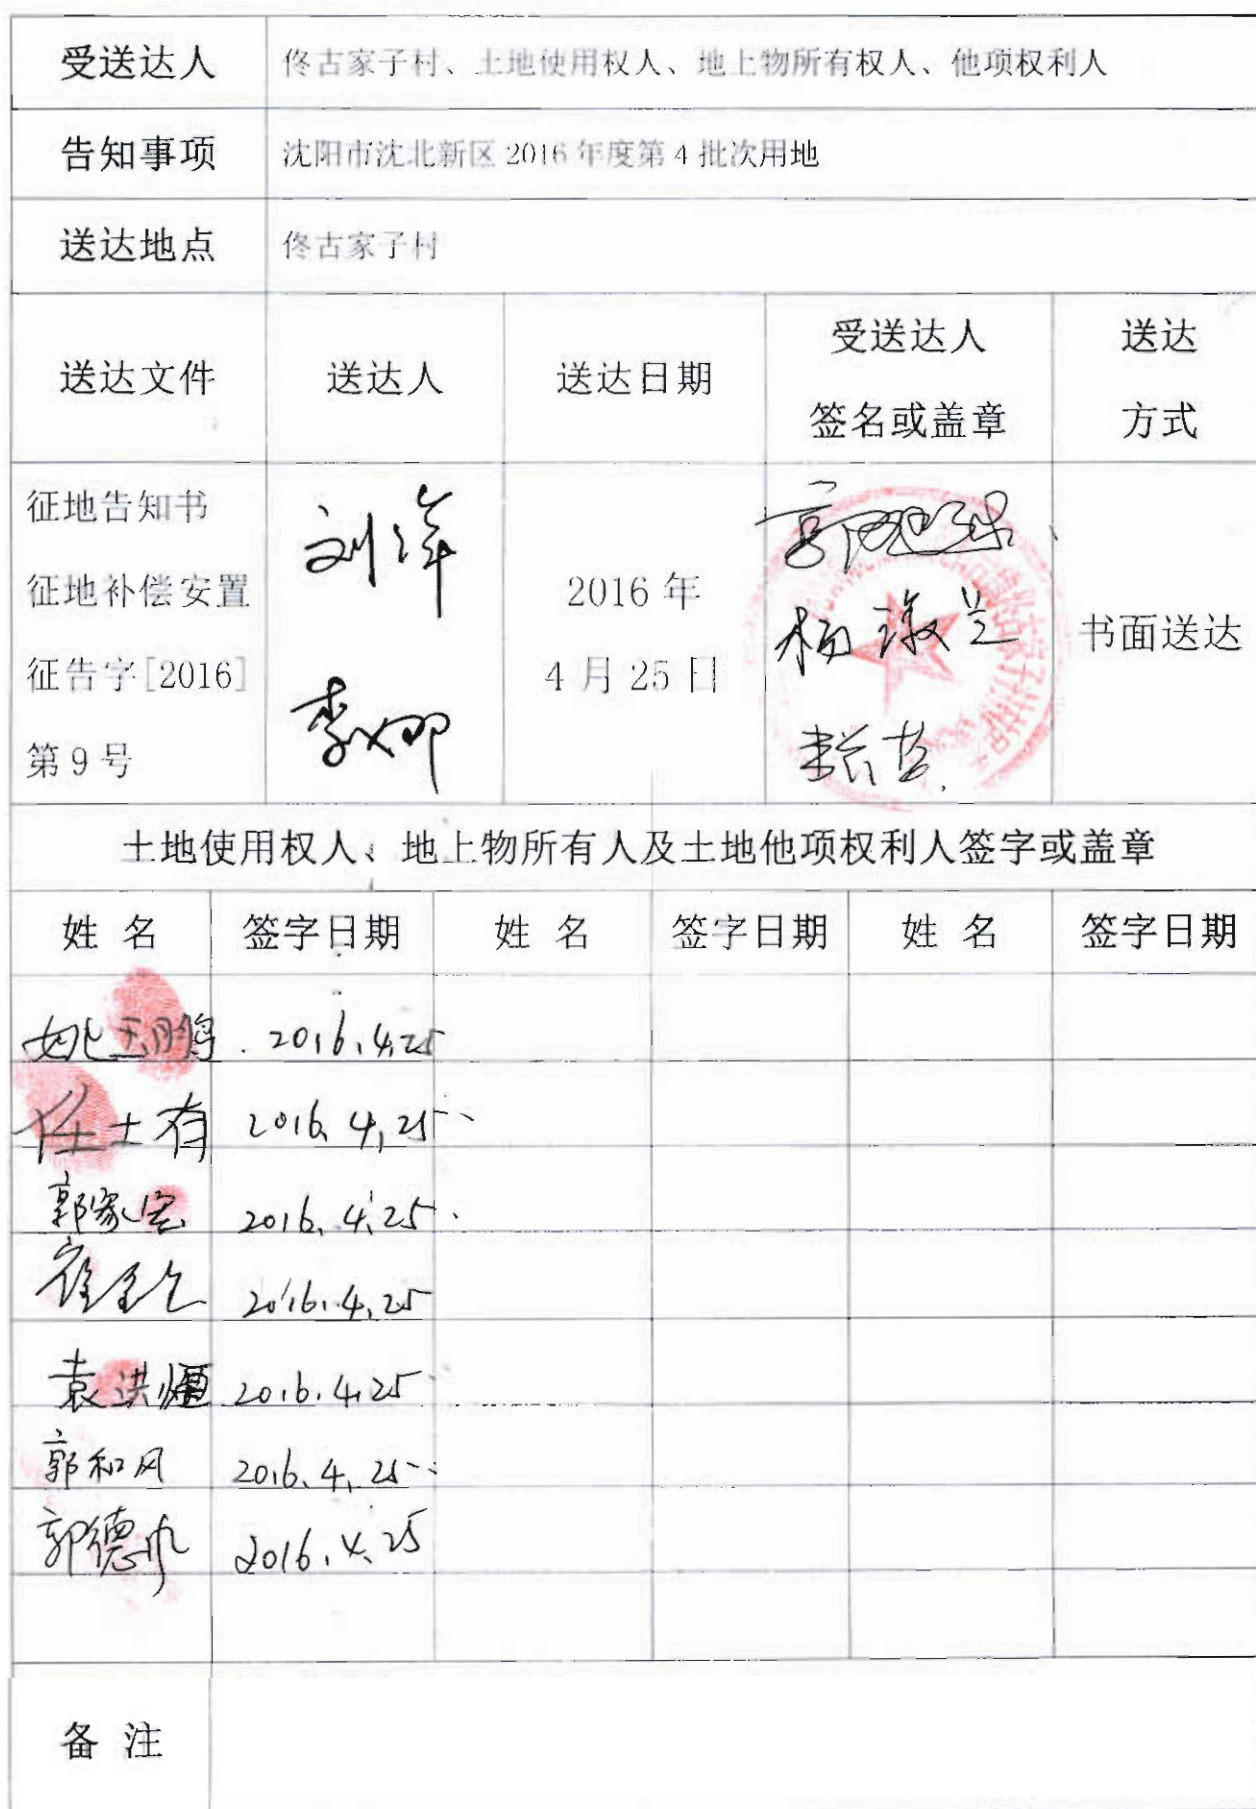 受送达人 佟古家子村、土地使用权人、地上物所有权人、他项权利人
告知事项 沈阳市沈北新区 2016 年度第 4 批次用地
送达地点 佟古家子村
送达文件 送达人 送达日期 受送达人 签名或盖章 送达 方式
征地告知书
征地补偿安置
征告字[2016]
第 9 号
刘洋
李娜
2016 年
4 月 25 日
杨淑兰
书面送达
土地使用权人、地上物所有人及土地他项权利人签字或盖章
姓 名 签字日期 姓 名 签字日期 姓 名 签字日期
2016.4.25
任士有 2016.4.25
郭家宏 2016.4.25
2016.4.25
袁洪 2016.4.25
郭和风 2016.4.25
郭德 2016.4.25
备 注